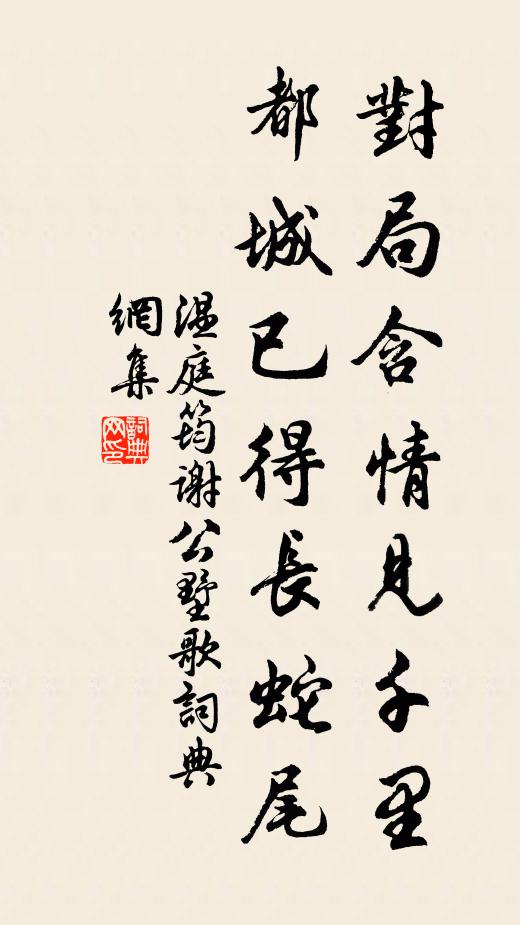 對局含情見千里
都城已得長蛇尾
温庭筠謝公墅歌詞典
網集
詞典
网印